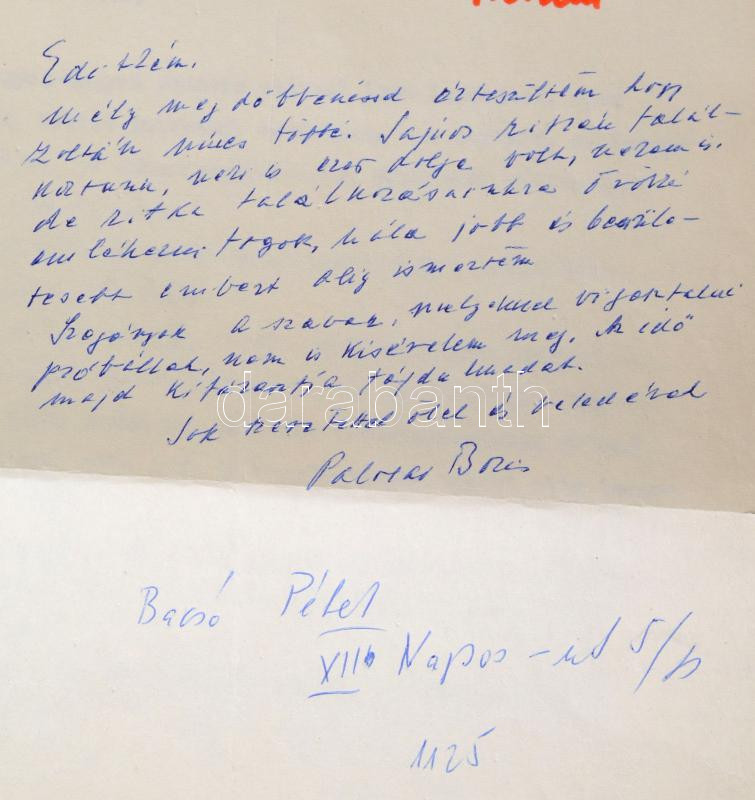 Editkém.
Mély megdöbbenéssel értesültem hogy
Zoltán nincs többé. Sajnos ritkán talál-
koztunk, neki is ezer dolga volt, nekem is.
de ritka találkozásainkra örökké
emlékezni fogok, nála jobb és becsüle-
tesebb embert alig ismertem
Szegényok a szavak, melyekkel vigasztalni
próbállak, nem is kisérelem meg. Az idő
majd kifárasztja fájdalmadat.
Sok szeretettel ölel és veled érző
Boris
darabanth
Bacsó Péter
XII. Napos-út 5/b
1125